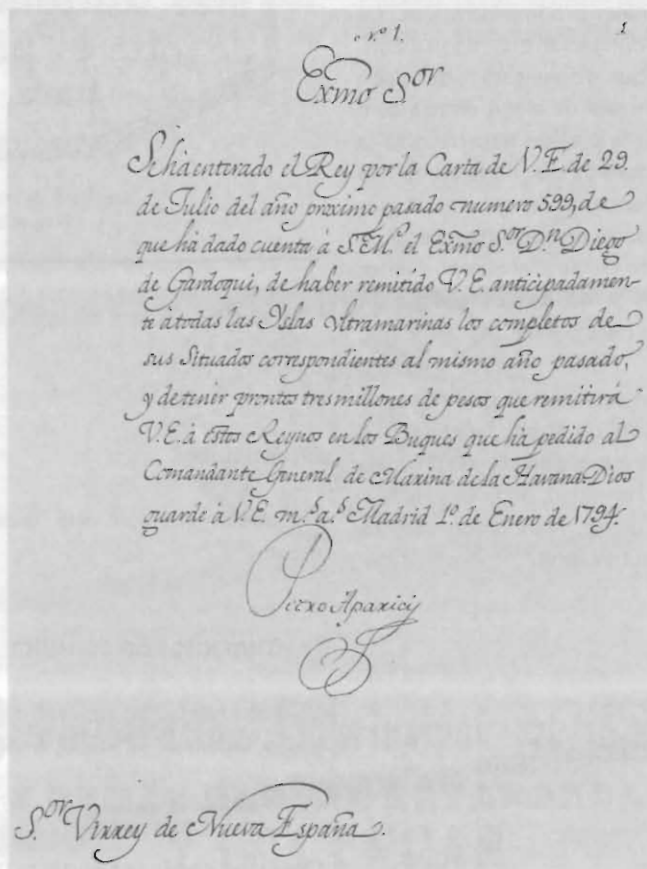 n.º 1.
1
Exmo S.or
Se há enterado el Rey por la Carta de V.E. de 29.
de Julio del año proximo pasado numero 599, de
que há dado cuenta à S.M.d el Exmo S.or D.n Diego
de Gardoqui, de haber remitido V.E. anticipadamen-
te à todas las Yslas Vltramarinas los completos de
sus Situados correspondientes al mismo año pasado,
y de tener prontos tres millones de pesos que remitirá
V.E. à estos Reynos en los Buques que há pedido al
Comandante General de Marina de la Havana. Dios
guarde à V.E. m.s a.s Madrid 1.º de Enero de 1794.
Pedro Aparici
S.or Virrey de Nueva España.